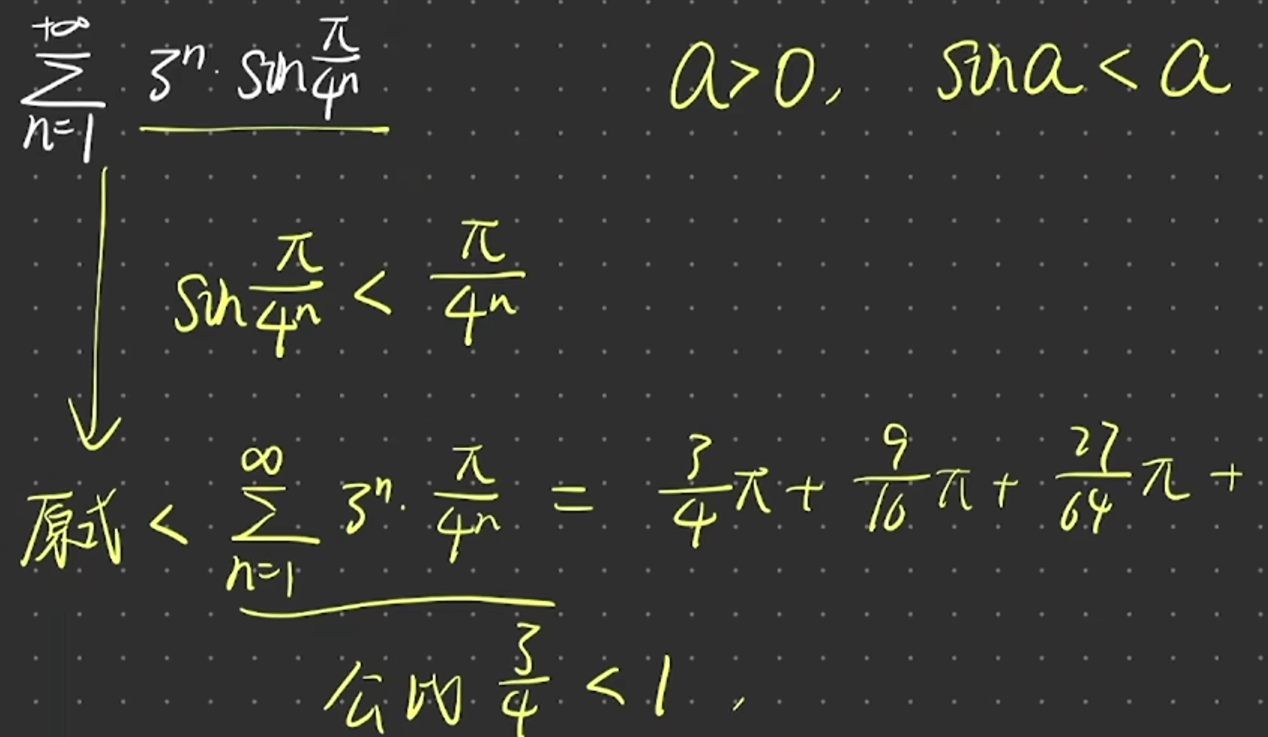 $\sum_{n=1}^{+\infty} 3^n \cdot \sin\frac{\pi}{4^n}$ a>0, sin a < a
$\sin\frac{\pi}{4^n} < \frac{\pi}{4^n}$
原式 < $\sum_{n=1}^{\infty} 3^n \cdot \frac{\pi}{4^n} = \frac{3}{4}\pi + \frac{9}{16}\pi + \frac{27}{64}\pi +$
公比 $\frac{3}{4} < 1$,